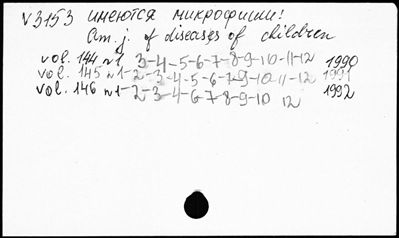 V3153 имеются микрофиши!
Am. j. of diseases of children
vol. 144 n1 3-4-5-6-7-8-9-10-11-12 1990
vol. 145 n1-2-3-4-5-6-7-9-10-11-12 1991
vol. 146 n1-2-3-4-6-7-8-9-10 12 1992